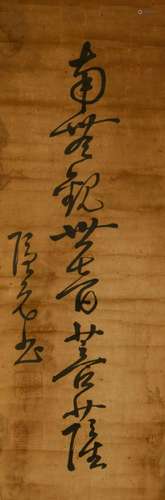 南無觀世音菩薩
隠元書